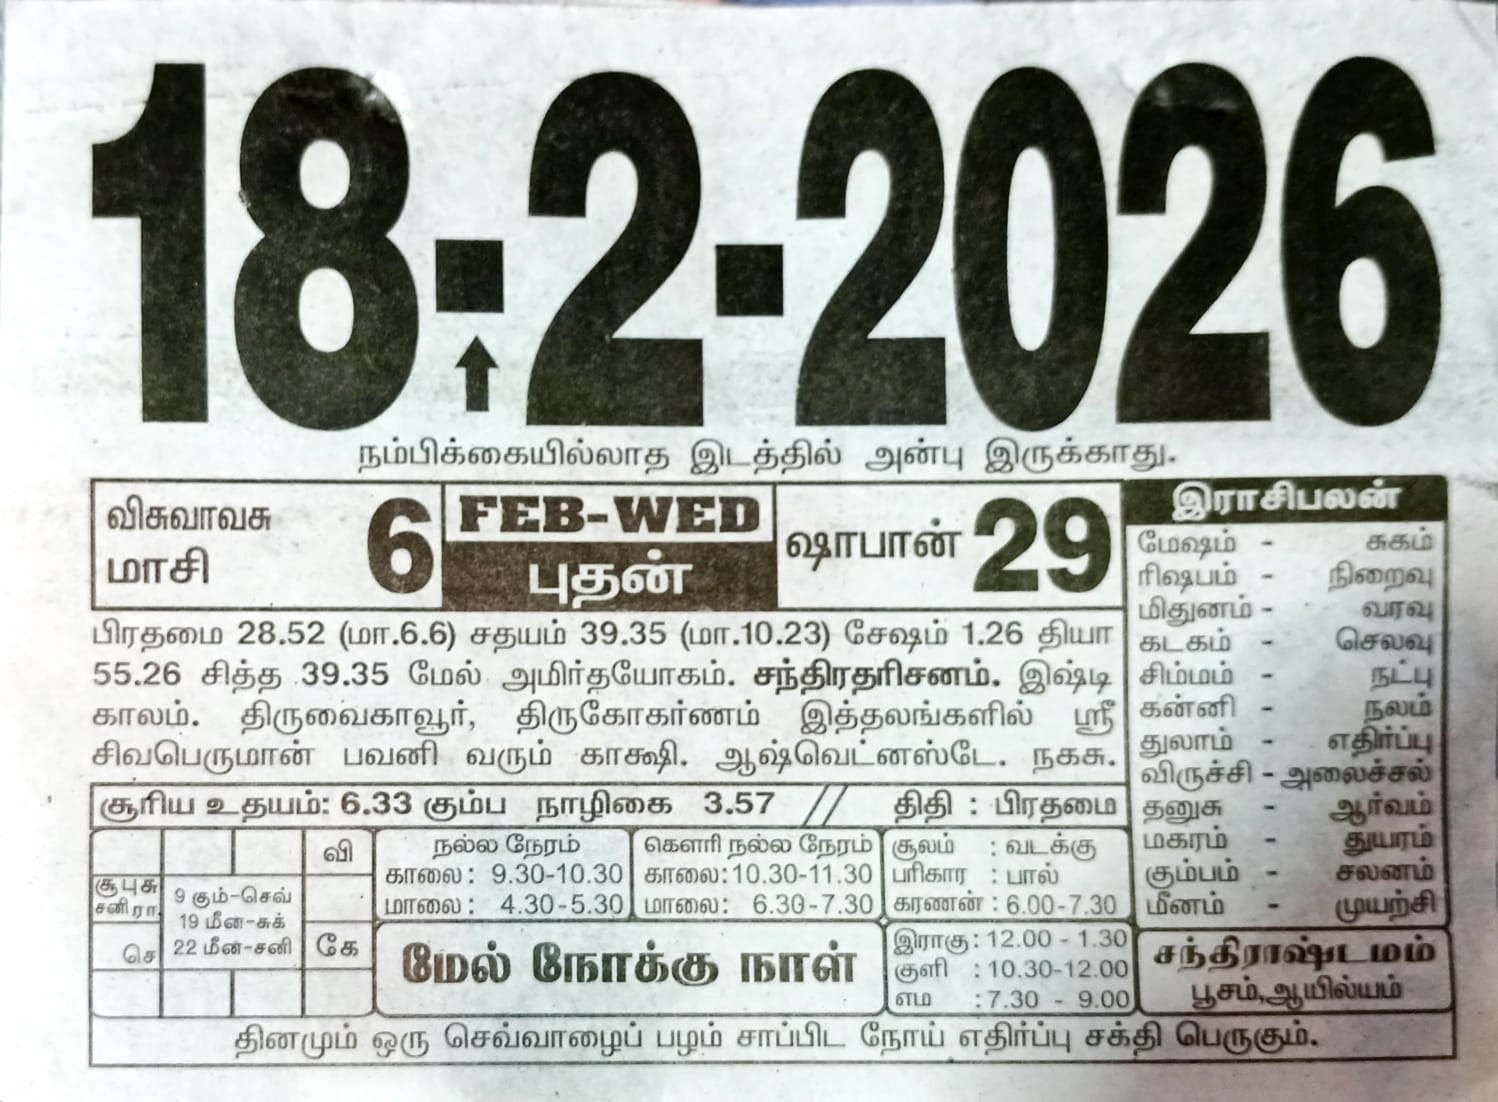 18-2-2026
நம்பிக்கையில்லாத இடத்தில் அன்பு இருக்காது.
விசுவாவசு
மாசி 6
FEB-WED
புதன்
ஷாபான் 29
பிரதமை 28.52 (மா.6.6) சதயம் 39.35 (மா.10.23) சேஷம் 1.26 தியா
55.26 சித்த 39.35 மேல் அமிர்தயோகம். சந்திரதரிசனம். இஷ்டி
காலம். திருவைகாவூர், திருகோகர்ணம் இத்தலங்களில் ஸ்ரீ
சிவபெருமான் பவனி வரும் காக்ஷி. ஆஷ்வெட்னஸ்டே. நகசு.
சூரிய உதயம்: 6.33 கும்ப நாழிகை 3.57 // திதி : பிரதமை
வி
சூ பு சு
சனி ரா
9 கும்-செவ்
19 மீன-சுக்
22 மீன்-சனி
செ
கே
நல்ல நேரம்
காலை: 9.30-10.30
மாலை: 4.30-5.30
கௌரி நல்ல நேரம்
காலை: 10.30-11.30
மாலை: 6.30-7.30
சூலம் : வடக்கு
பரிகார : பால்
கரணன் : 6.00-7.30
மேல் நோக்கு நாள்
இராகு : 12.00 - 1.30
குளி : 10.30-12.00
எம : 7.30 - 9.00
இராசிபலன்
மேஷம் - சுகம்
ரிஷபம் - நிறைவு
மிதுனம் - வரவு
கடகம் - செலவு
சிம்மம் - நட்பு
கன்னி - நலம்
துலாம் - எதிர்ப்பு
விருச்சி - அலைச்சல்
தனுசு - ஆர்வம்
மகரம் - துயரம்
கும்பம் - சலனம்
மீனம் - முயற்சி
சந்திராஷ்டமம்
பூசம்,ஆயில்யம்
தினமும் ஒரு செவ்வாழைப் பழம் சாப்பிட நோய் எதிர்ப்பு சக்தி பெருகும்.